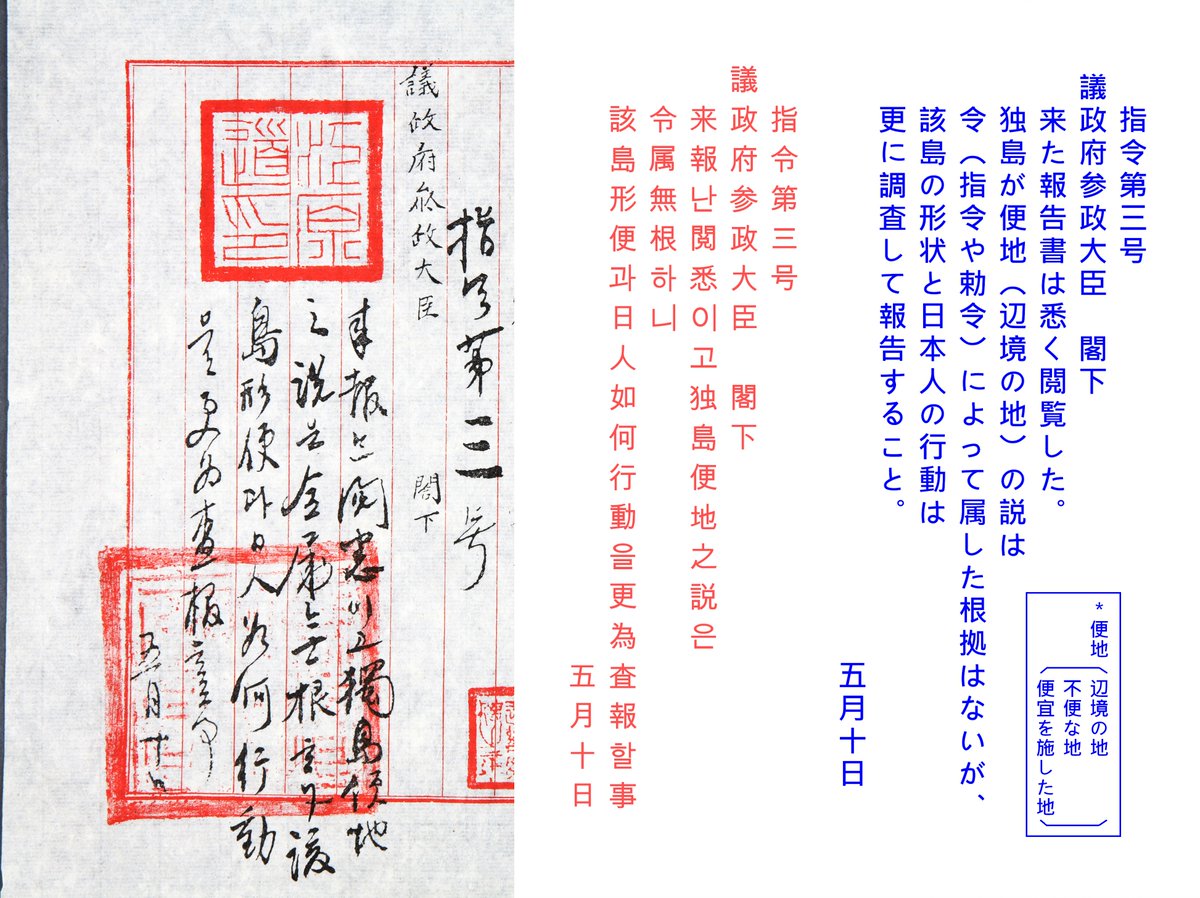 指令第三号
議政府参政大臣　閣下
来た報告書は悉く閲覧した。
独島が便地（辺境の地）の説は
令（指令や勅令）によって属した根拠はないが、
該島の形状と日本人の行動は
更に調査して報告すること。
五月十日
*便地
辺境の地
不便な地
便宜を施した地
指令第三号
議政府参政大臣　閣下
来報난閲悉이고独島便地之説은
令属無根하니
該島形便과日人如何行動을更為査報할事
五月十日
指令第三号
議政府參政大臣　閣下
來報는閱悉이고獨島領地
之說은全屬無根하나該
島形便과日人如何行動
을更爲査報할事
五月十日
江原
道印